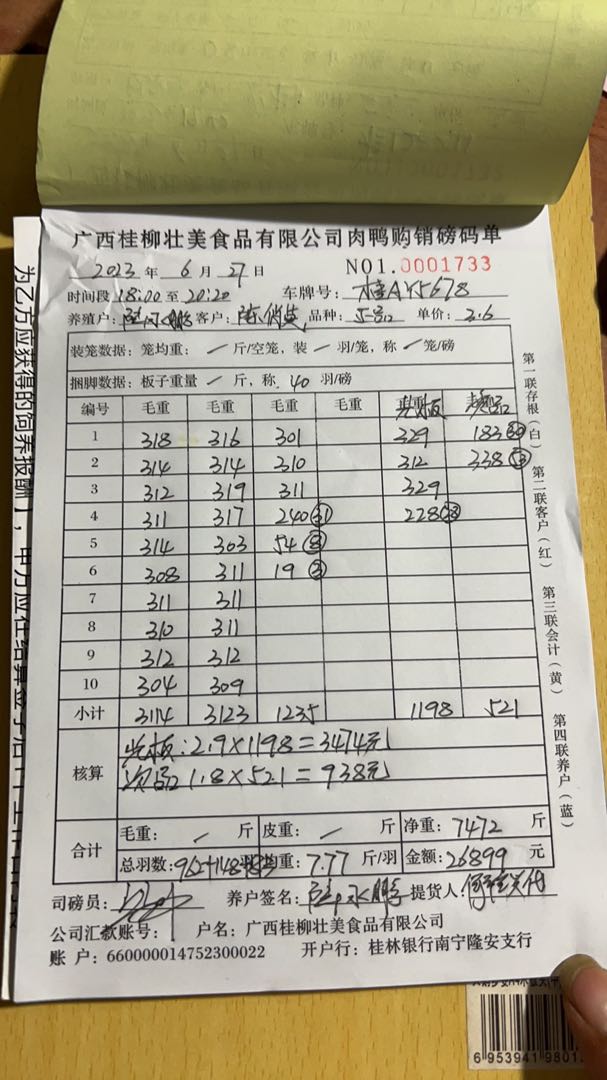 广西桂柳壮美食品有限公司肉鸭购销磅码单
2023 年 6 月 27 日 NO1.0001733
时间段 18:00 至 20:20 车牌号: 桂AY5678
养殖户: 客户: 陈俏英 品种: 单价: 3.6
装笼数据: 笼均重: / 斤/空笼, 装 / 羽/笼, 称 / 笼/磅
捆脚数据: 板子重量 / 斤, 称 40 羽/磅
编号 毛重 毛重 毛重 毛重
1 318 316 301 329 183
2 314 314 310 312 338
3 312 319 311 329
4 311 317 240 31 228
5 314 303 54 8
6 308 311 19 3
7 311 311
8 310 311
9 312 312
10 304 309
小计 3114 3123 1235 1198 521
核算
光板: 2.9×1198=3474元
次品 1.8×521=938元
合计
毛重: / 斤 皮重: / 斤 净重: 7472 斤
总羽数: 均重: 7.77 斤/羽 金额: 26899 元
司磅员: 养户签名: 提货人:
公司汇款账号: 户名: 广西桂柳壮美食品有限公司
账 户: 660000014752300022 开户行: 桂林银行南宁隆安支行
第一联存根(白)
第二联客户(红)
第三联会计(黄)
第四联养户(蓝)
为乙方应获得的饲养报酬
6 953941 9801